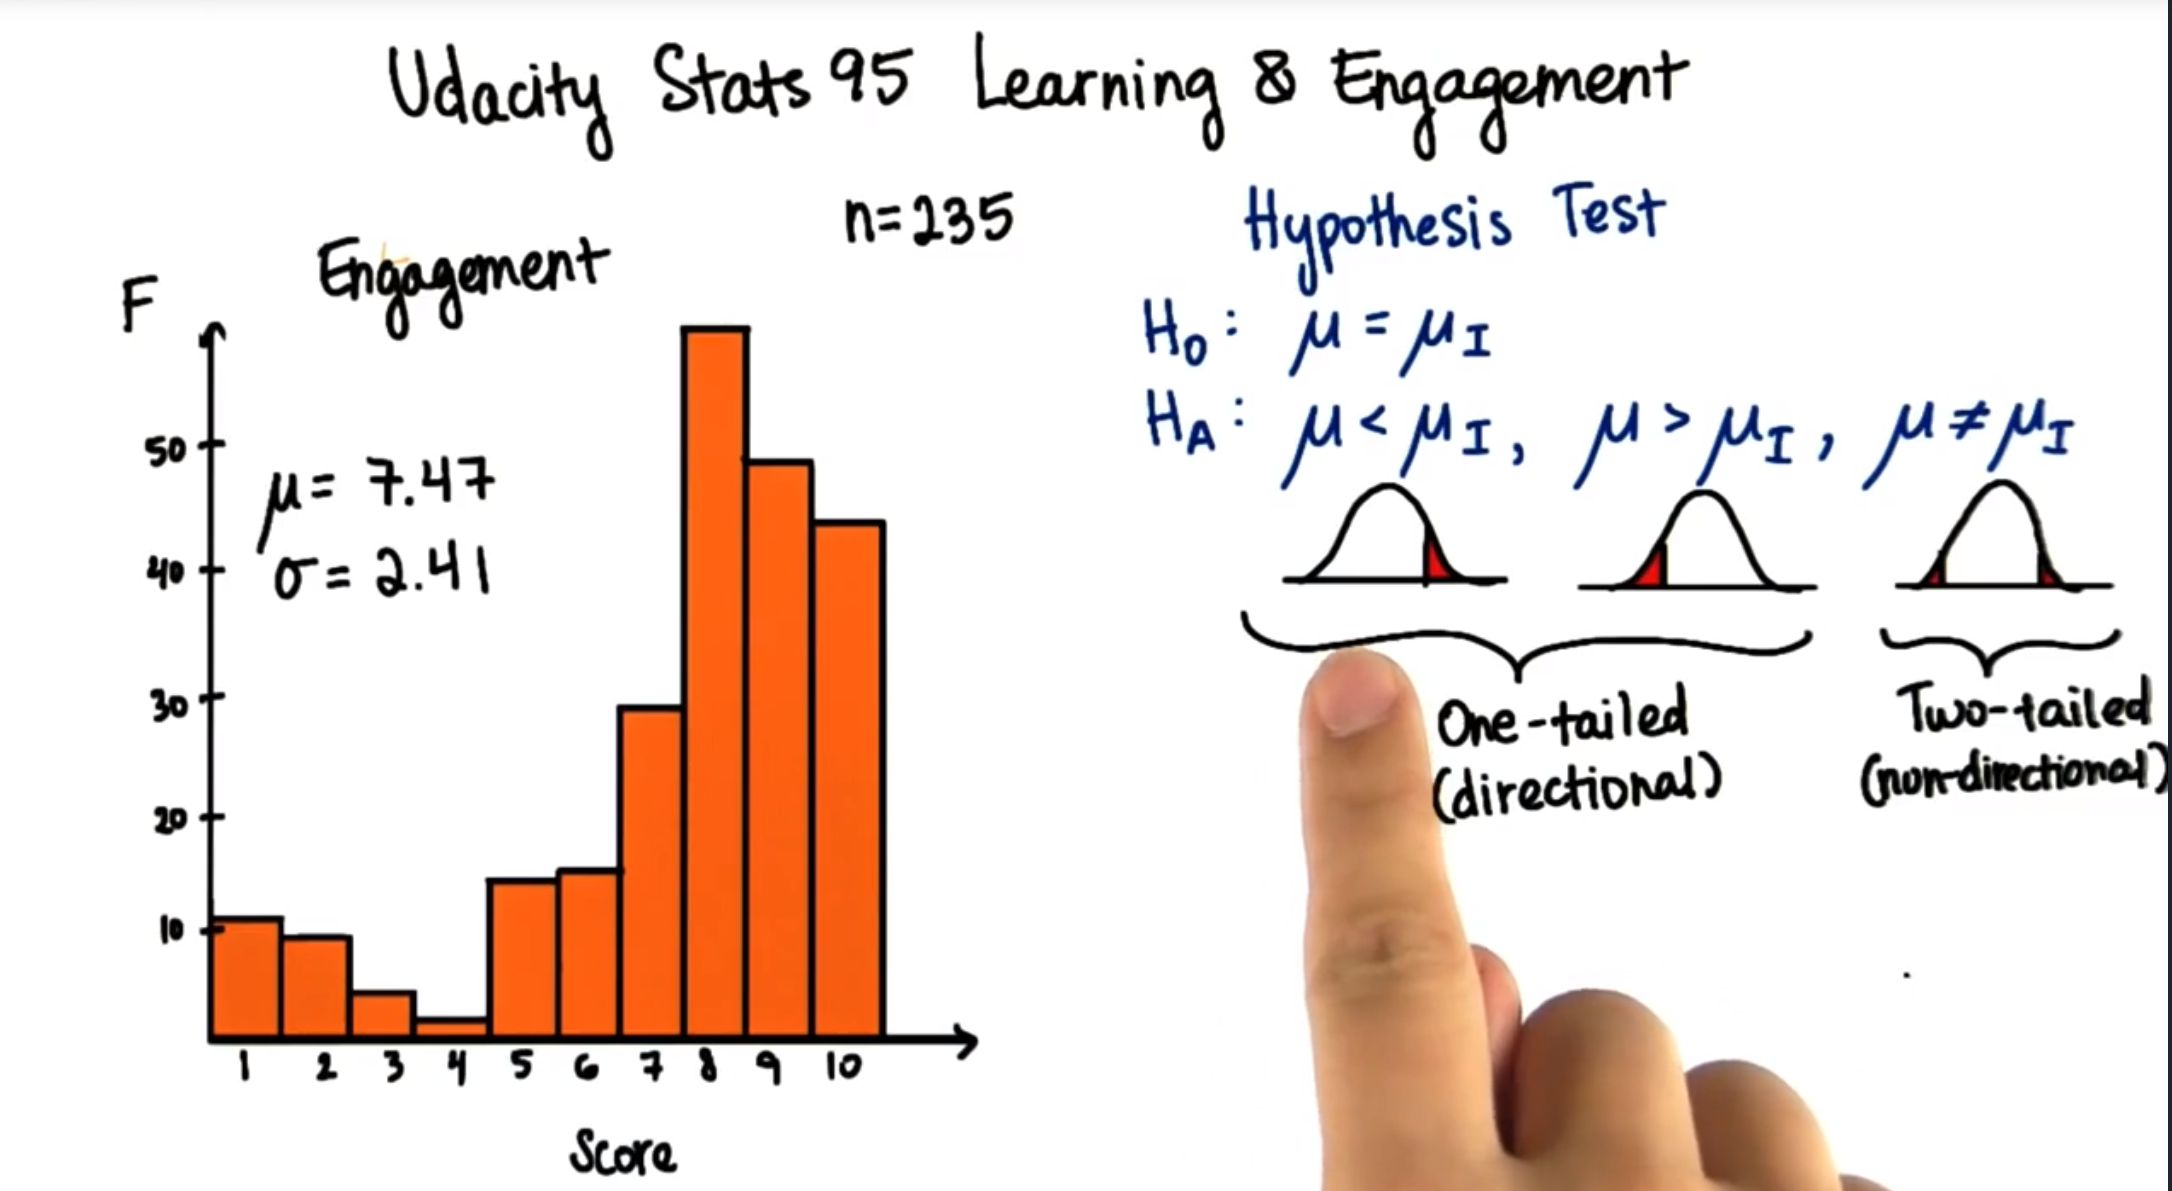 Udacity Stats 95 Learning & Engagement
Engagement
n=235
F
50
40
30
20
10
μ= 7.47
σ= 2.41
1 2 3 4 5 6 7 8 9 10
Score
Hypothesis Test
H₀: μ = μ_I
H_A: μ < μ_I, μ > μ_I, μ ≠ μ_I
One-tailed
(directional)
Two-tailed
(non-directional)